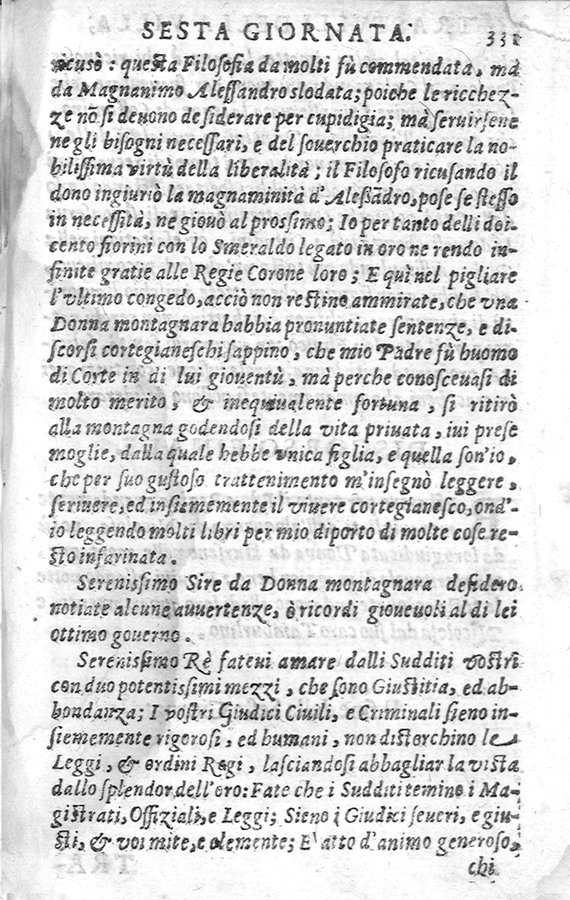 SESTA GIORNATA. 331
ricusò: questa Filosofia da molti fù commendata, mà
da Magnanimo Alessandro slodata; poiche le ricchez-
ze nõ si deuono desiderare per cupidigia; mà seruirsene
negli bisogni necessari, e del souerchio praticare la no-
bilissima virtù della liberalità; il Filosofo ricusando il
dono ingiuriò la magnaminità d'Alessãdro, pose se stesso
in necessità, ne giouò al prossimo; Io per tanto delli doi-
cento fiorini con lo Smeraldo legato in oro ne rendo in-
finite gratie alle Regie Corone loro; E quì nel pigliare
l'vltimo congedo, acciò non restino ammirate, che vna
Donna montagnara habbia pronuntiate sentenze, e di-
scorsi cortegianeschi sappino, che mio Padre fù huomo
di Corte in di lui giouentù, mà perche conosceuasi di
molto merito, & inequiualente fortuna, si ritirò
alla montagna godendosi della vita priuata, iui prese
moglie, dalla quale hebbe vnica figlia, e quella son'io,
che per suo gustoso trattenimento m'insegnò leggere,
scriuere, ed insiememente il viuere cortegianesco, ond'-
io leggendo molti libri per mio diporto di molte cose re-
sto infarinata.
Serenissimo Sire da Donna montagnara desidero
notiate alcune auuertenze, ò ricordi gioueuoli al di lei
ottimo gouerno.
Serenissimo Rè fateui amare dalli Sudditi vostri
con duo potentissimi mezzi, che sono Giustitia, ed ab-
bondanza; I vostri Giudici Ciuili, e Criminali sieno in-
siememente rigorosi, ed humani, non distorchino le
Leggi, & ordini Regi, lasciandosi abbagliar la vista
dallo splendor dell'oro: Fate che i Sudditi temino i Ma-
gistrati, Offiziali, e Leggi; Sieno i Giudici seueri, e giu-
sti, & voi mite, e clemente; E' atto d'animo generoso,
chi